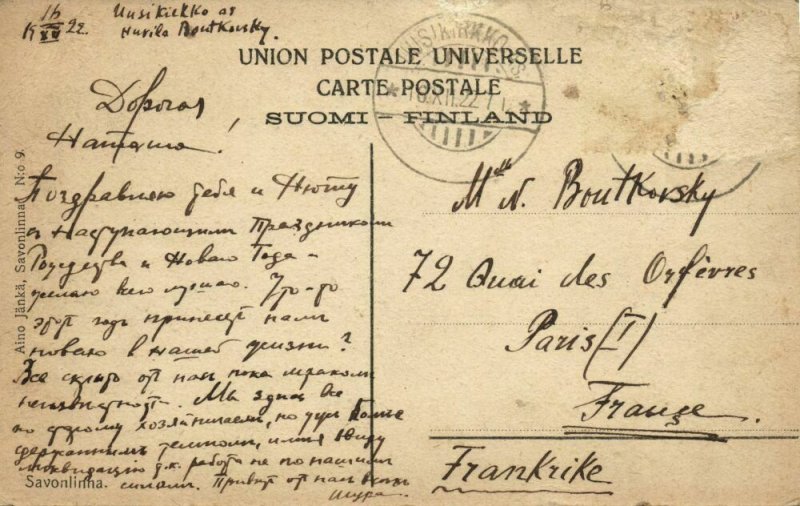 16 XII 22. Uusikirkko as
Huvila Boutkovsky.
UNION POSTALE UNIVERSELLE
CARTE POSTALE
SUOMI – FINLAND
UUSIKIRKKO
16.XII.22
Дорогая
Наташа!
Поздравляю тебя и Нюту
с наступающими Праздниками
Рождества и Новаго Года –
желаю всего лучшаго. Что-то
этот годъ принесетъ намъ
новаго в нашей жизни?
Все скрыто от нас пока мраком
неизвестности. Мы здесь все
по старому хозяйничаем, но уже более
сдержанным темпом, имея ввиду
ликвидацию, т.к. работа не по нашим
силам. Привет от нас всех
Шура.
Mlle N. Boutkovsky
72 Quai des Orfèvres
Paris (I)
France.
Frankrike
Aino Jänkä, Savonlinna. N:o 9.
Savonlinna.